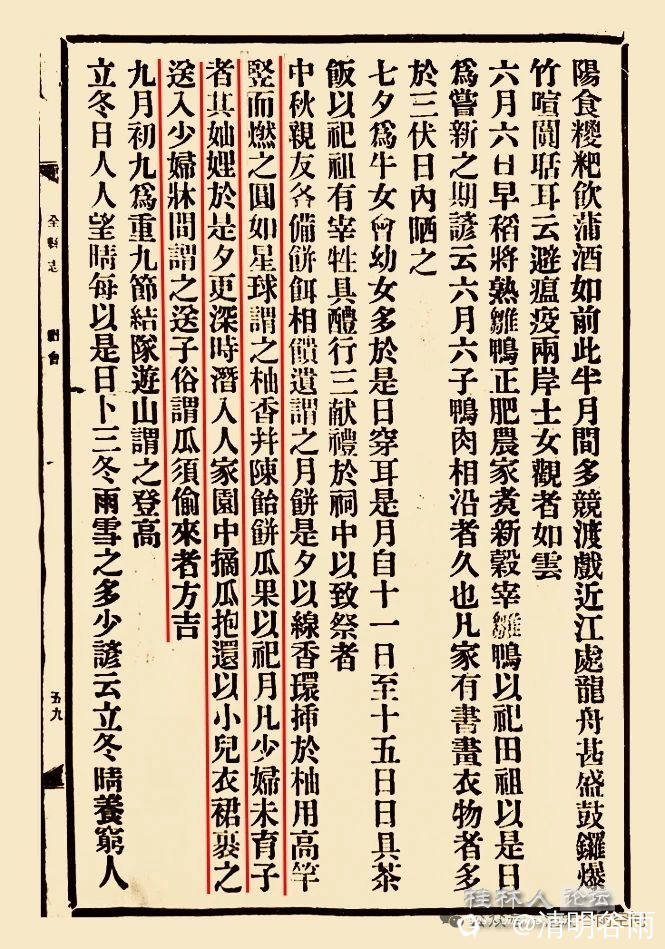 陽食糉粑飲蒲酒如前此半月間多競渡戲近江處龍舟甚盛鼓鑼爆
竹喧闐聒耳云避瘟疫兩岸士女觀者如雲
六月六日早稻將熟雛鴨正肥農家煑新穀宰雛鴨以祀田祖以是日
爲嘗新之期諺云六月六子鴨肉相沿者久也凡家有書畫衣物者多
於三伏日內晒之
七夕爲牛女會幼女多於是日穿耳是月自十一日至十五日日具茶
飯以祀祖有宰牲具醴行三献禮於祠中以致祭者
中秋親友各備餅餌相饋遺謂之月餅是夕以線香環揷於柚用高竿
竪而燃之圓如星球謂之柚香幷陳飴餅瓜果以祀月凡少婦未育子
者其妯娌於是夕更深時潛入人家園中摘瓜抱還以小兒衣裙裹之
送入少婦牀間謂之送子俗謂瓜須偷來者方吉
九月初九爲重九節結隊遊山謂之登高
立冬日人人望晴每以是日卜三冬雨雪之多少諺云立冬晴養窮人
五九
桂林人论坛
@清明谷雨